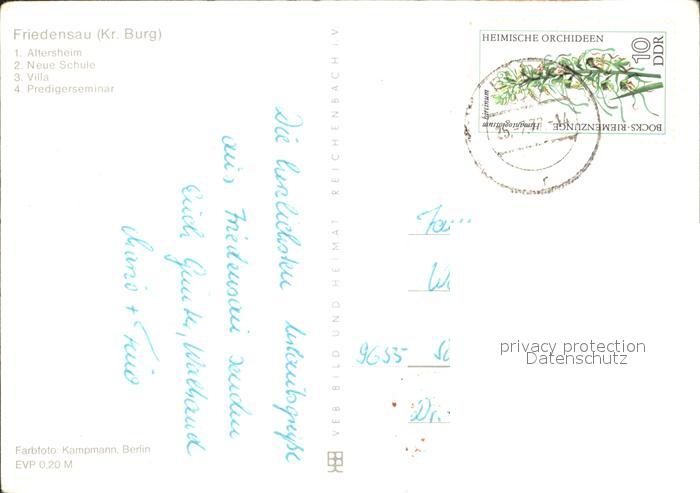 Friedensau (Kr. Burg)
1. Altersheim
2. Neue Schule
3. Villa
4. Predigerseminar
Die herzlichsten Urlaubsgrüße
aus Friedensau senden
Euch Günter, Waltraud
Mario +
VEB BILD UND HEIMAT REICHENBACH IV
HEIMISCHE ORCHIDEEN
10
DDR
BOCKS-RIEMENZUNGE
Himantoglossum hircinum
9655
Dr.
privacy protection
Datenschutz
Farbfoto: Kampmann, Berlin
EVP 0,20 M